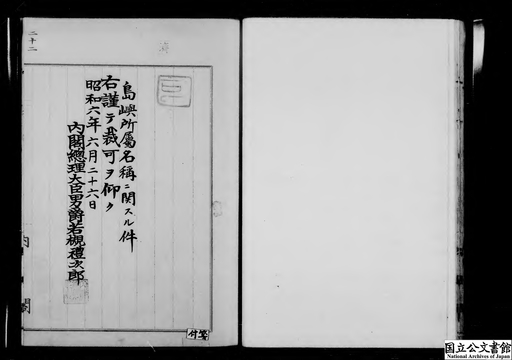 島嶼所屬名稱ニ関スル件
右謹テ裁可ヲ仰ク
昭和六年六月二十六日
内閣總理大臣男爵若槻禮次郎
内閣
二十二
国立公文書館
National Archives of Japan